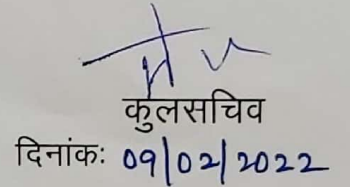 कुलसचिव
दिनांकः 09/02/2022